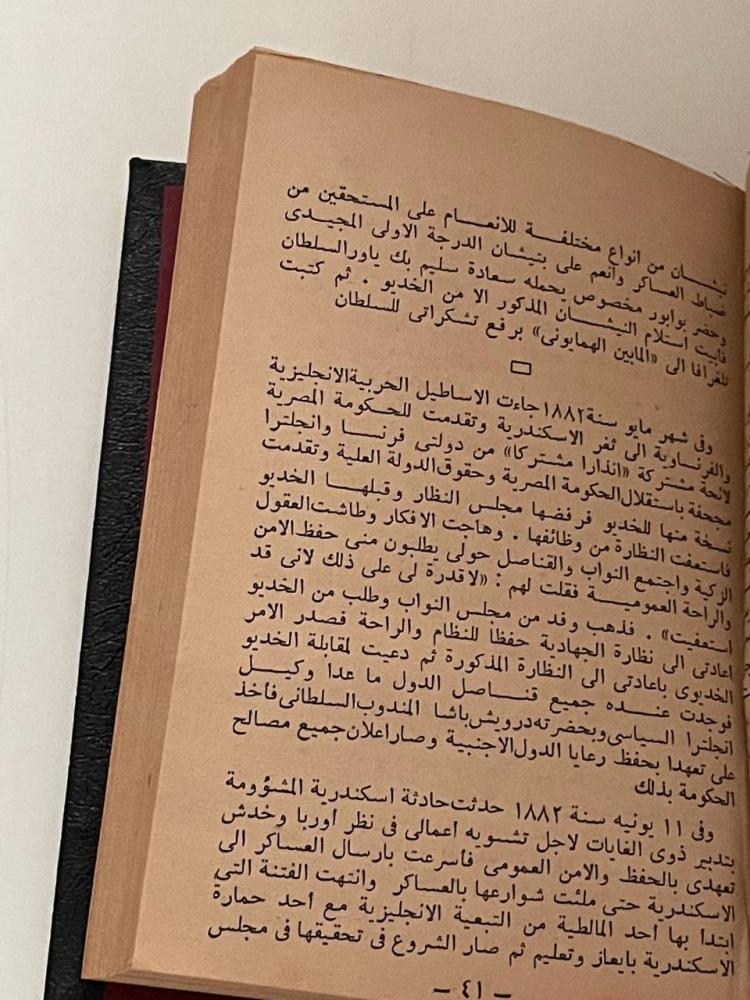 نيشـــان من انواع مختلفـــة للانعـــام على المستحقين من
ضباط العساكر وأنعم على بنيشان الدرجة الاولى المجيدى
وحضر بوابور مخصوص يحمله سعادة سليم بك ياورالسلطان
فابيت استلام النيشـــان المذكور الا من الخديو . ثم كتبت
تلغرافا الى «المابين الهمايونى» برفع تشكراتى للسلطان
وفى شهر مايو سنة ١٨٨٢ جاءت الاساطيل الحربية الانجليزية
والفرنساوية الى ثغر الاسكندرية وتقدمت للحكومة المصرية
لائحة مشتركة «انذارا مشتركا» من دولتى فرنسا وانجلترا
مجحفة باستقلال الحكومة المصرية وحقوق الدولة العلية وتقدمت
نسخة منها للخديو فرفضها مجلس النظار وقبلهـــا الخديو
فاستعفت النظارة من وظائفها . وهاجت الافكار وطاشت العقول
الزكية واجتمع النواب والقناصل حولى يطلبون منى حفظ الامن
والراحة العموميـــة فقلت لهم : «لا قدرة لى على ذلك لانى قد
استعفيت» . فذهب وفد من مجلس النواب وطلب من الخديو
اعادتى الى نظارة الجهادية حفظا للنظام والراحة فصدر الامر
الخديوى باعادتى الى النظارة المذكورة ثم دعيت لمقابلة الخديو
فوجدت عنـــده جميع قنـــاصل الدول ما عدا وكيـــل
انجلترا السياسى وبحضرته درويش باشا المندوب السلطانى فأخذ
على تعهدا بحفظ رعايا الدول الاجنبية وصار اعلان جميع مصالح
الحكومة بذلك
وفى ١١ يونيه سنة ١٨٨٢ حدثت حادثة اسكندرية المشؤومة
بتدبير ذوى الغايات لاجل تشويه أعمالى فى نظر أوربا وخدش
تعهدى بالحفظ والامن العمومى فأسرعت بارسال العساكر الى
الاسكندرية حتى ملئت شوارعها بالعساكر وانتهت الفتنة التى
ابتدأ بها أحد المالطية من التبعية الانجليزية مع أحد حمارة
الاسكندرية بايعاز وتعليم ثم صار الشروع فى تحقيقها فى مجلس
– ٤١ –